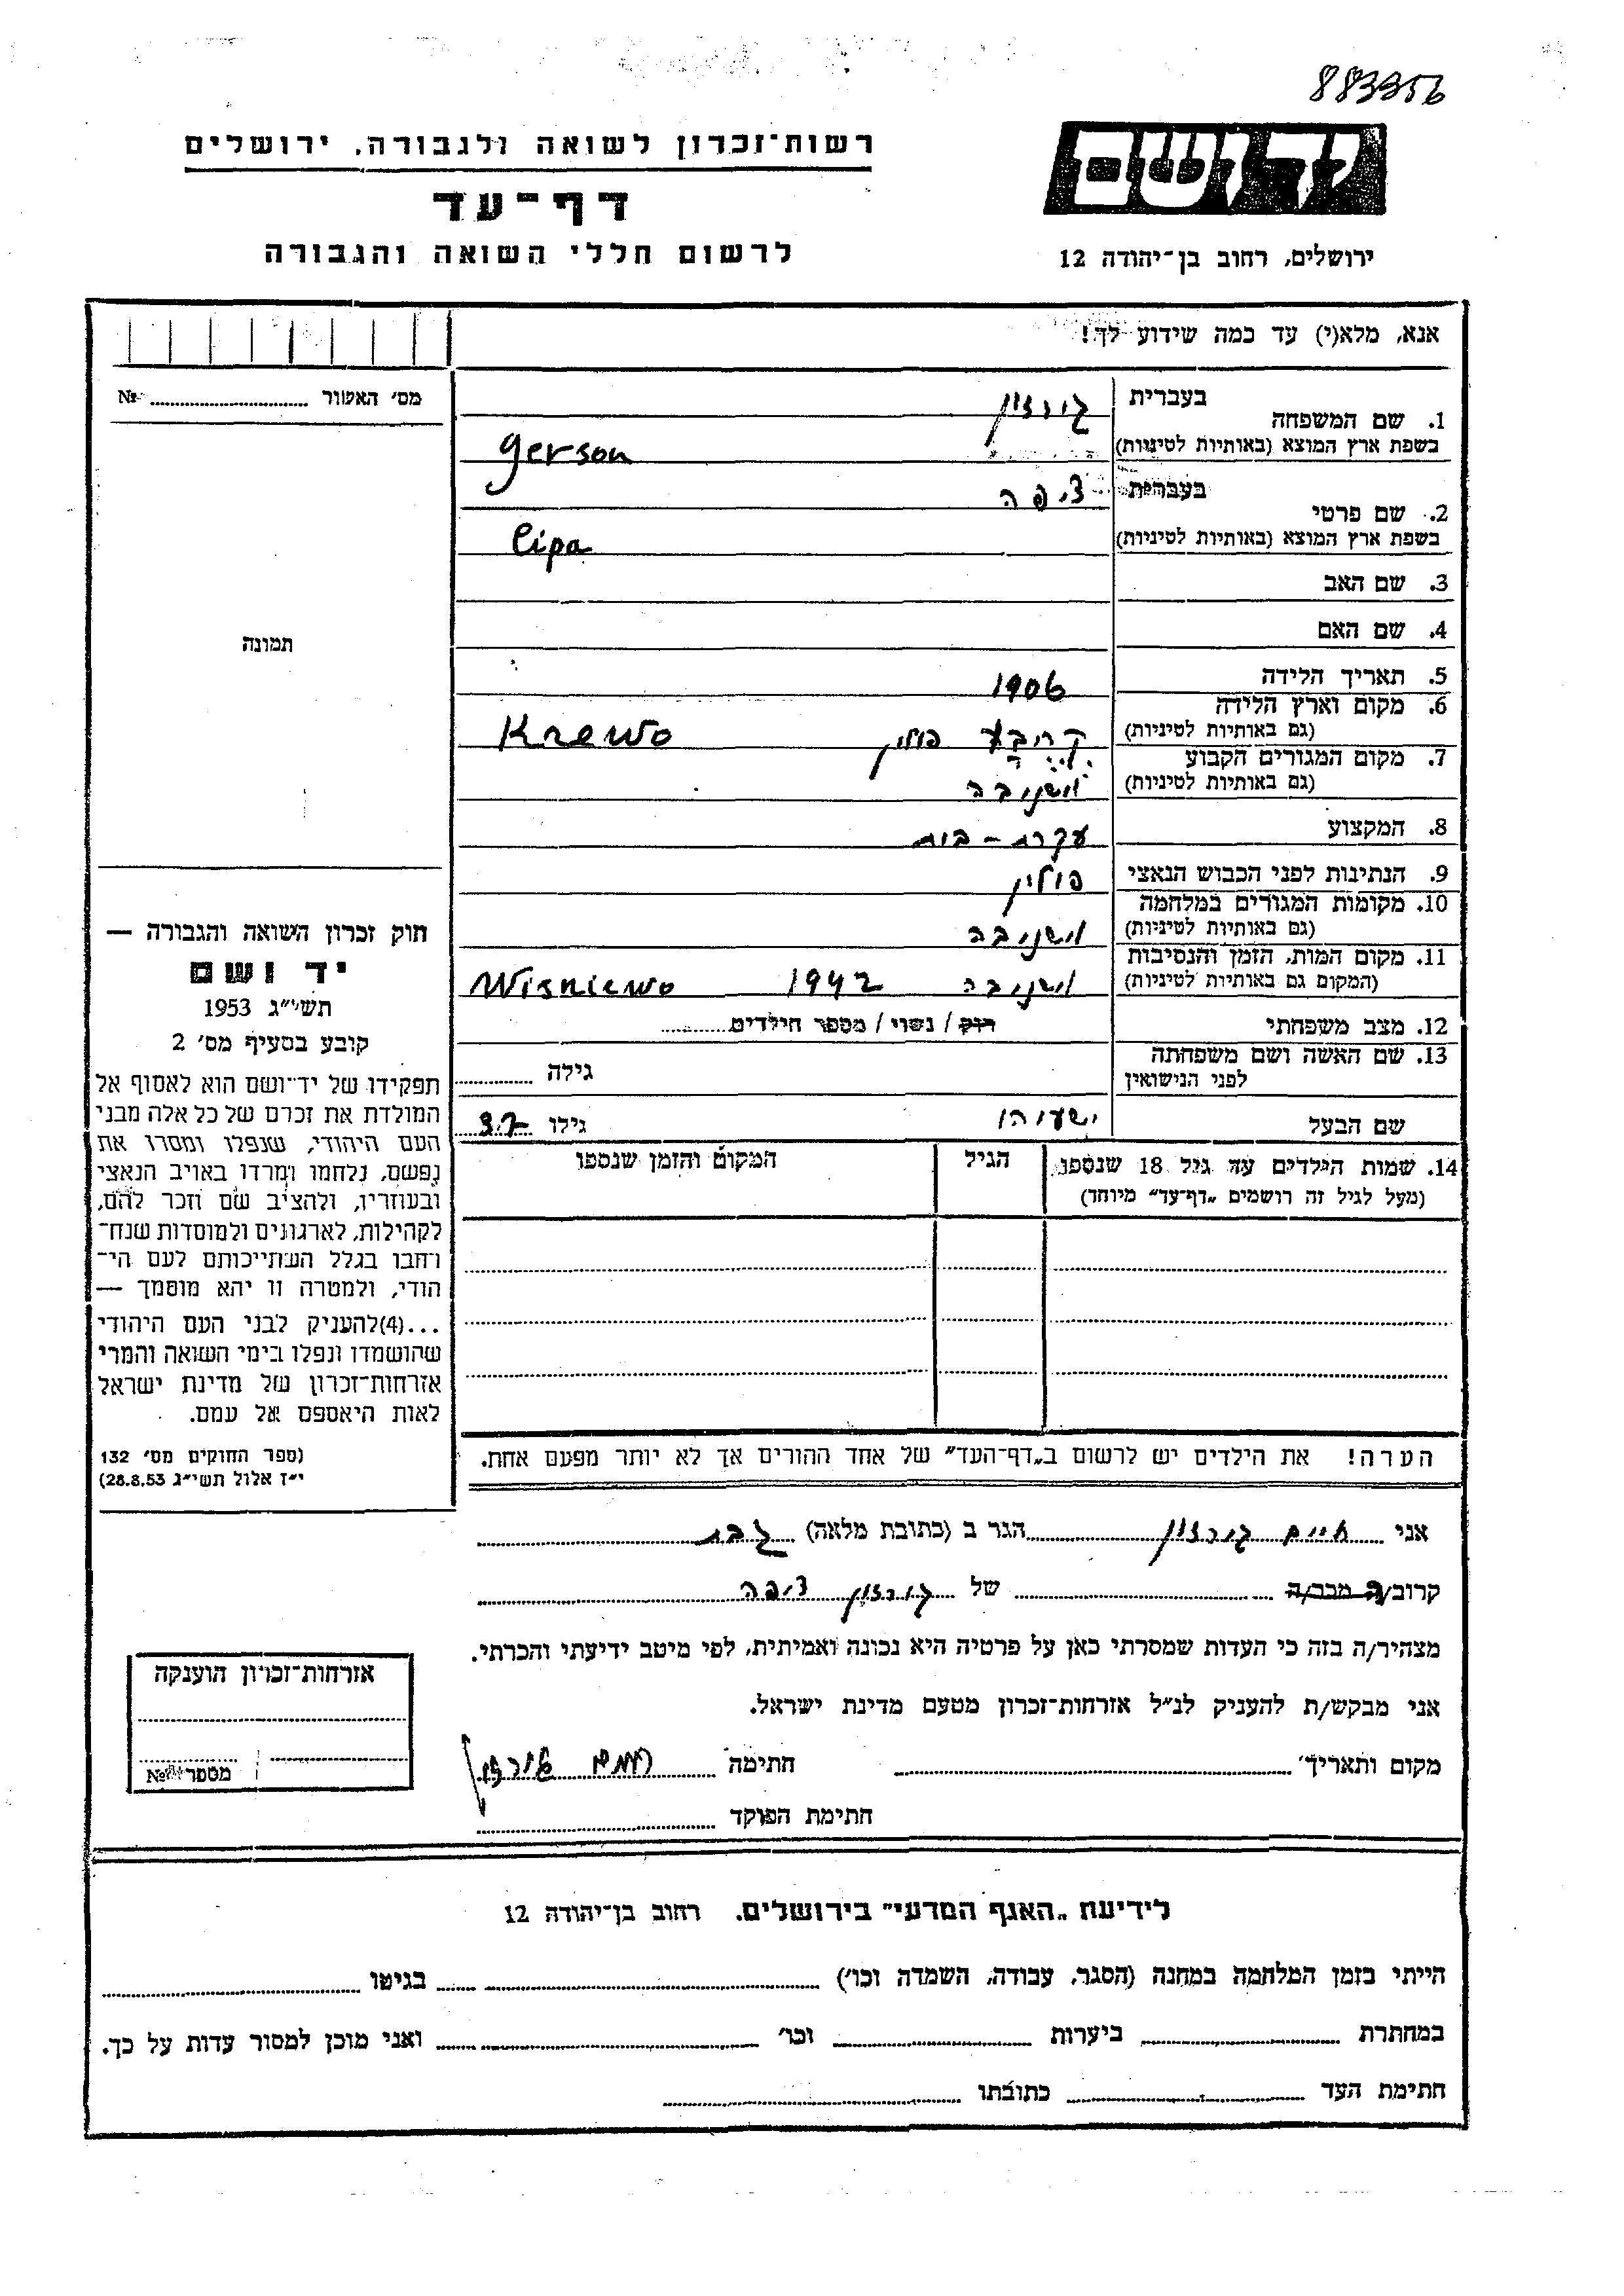 883356
יד ושם
רשות־זכרון לשואה ולגבורה, ירושלים
דף־עד
לרשום חללי השואה והגבורה
ירושלים, רחוב בן־יהודה 12
אנא, מלא(י) עד כמה שידוע לך!
מס׳ האשור № 
בעברית
1. שם המשפחה
גורזון
בשפת ארץ המוצא (באותיות לטיניות)
gerson
בעברית
2. שם פרטי
ציפה
בשפת ארץ המוצא (באותיות לטיניות)
Cipa
3. שם האב
4. שם האם
תמונה
5. תאריך הלידה 1906
6. מקום וארץ הלידה
(גם באותיות לטיניות)
פולין Krewo
7. מקום המגורים הקבוע
(גם באותיות לטיניות)
וישניבה
8. המקצוע עקרת - בית
9. הנתינות לפני הכבוש הנאצי פולין
10. מקומות המגורים במלחמה
(גם באותיות לטיניות)
וישניבה
11. מקום המות, הזמן והנסיבות
(המקום גם באותיות לטיניות)
וישניבה 1942 Wisniewo
12. מצב משפחתי רוק / נשוי / מספר הילדים
13. שם האשה ושם משפחתה
לפני הנישואין
גילה
שם הבעל ישעיהו גילו 37
14. שמות הילדים עד גיל 18 שנספו
(מעל לגיל זה רושמים „דף־עד״ מיוחד)
הגיל
המקום והזמן שנספו
הערה! את הילדים יש לרשום ב„דף־העד״ של אחד ההורים אך לא יותר מפעם אחת.
חוק זכרון השואה והגבורה —
יד ושם
תשי״ג 1953
קובע בסעיף מס׳ 2
תפקידו של יד־ושם הוא לאסוף אל
המולדת את זכרם של כל אלה מבני
העם היהודי, שנפלו ומסרו את
נפשם, נלחמו ומרדו באויב הנאצי
ובעוזריו, ולהציב שם וזכר להם,
לקהילות, לארגונים ולמוסדות שנח־
רחבו בגלל השתייכותם לעם הי־
הודי, ולמטרה זו יהא מוסמך —
...(4)להעניק לבני העם היהודי
שהושמדו ונפלו בימי השואה והמרי
אזרחות־זכרון של מדינת ישראל
לאות היאספם אל עמם.
(ספר החוקים מס׳ 132
י״ז אלול תשי״ג 28.8.53)
אני חיים גורזון הגר ב (כתובת מלאה) גבת
קרוב/ה מכר/ה של גורזון ציפה
מצהיר/ה בזה כי העדות שמסרתי כאן על פרטיה היא נכונה ואמיתית, לפי מיטב ידיעתי והכרתי.
אני מבקש/ת להעניק לנ״ל אזרחות־זכרון מטעם מדינת ישראל.
מקום ותאריך חתימה חיים גורזון
חתימת הפוקד
אזרחות־זכרון הוענקה
מספר №
לידיעת „האגף המדעי״ בירושלים, רחוב בן־יהודה 12
הייתי בזמן המלחמה במחנה (הסגר, עבודה, השמדה וכו׳) בגיטו
במחתרת ביערות וכו׳ ואני מוכן למסור עדות על כך.
חתימת העד כתובתו